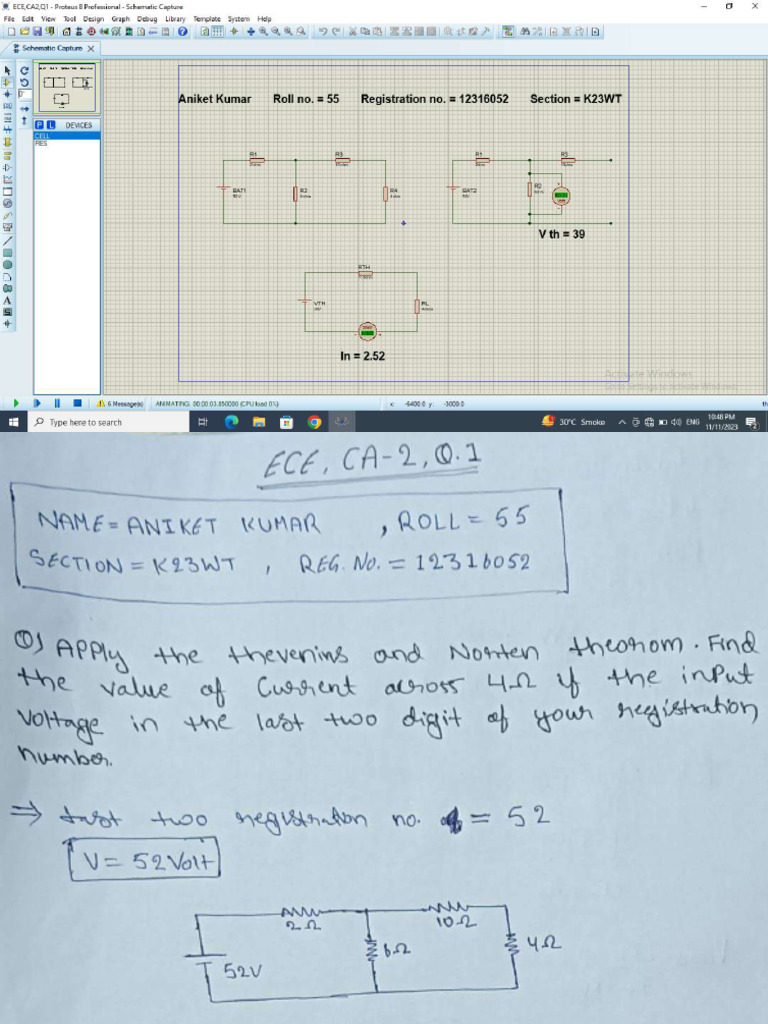 ECE,CA2,Q1 - Proteus 8 Professional - Schematic Capture
File Edit View Tool Design Graph Debug Library Template System Help
Schematic Capture
P L DEVICES
CELL
RES
Aniket Kumar Roll no. = 55 Registration no. = 12316052 Section = K23WT
R1 R3
BAT1 R2 R4
R1 R3
BAT2 R2
V th = 39
RTH
VTH RL
In = 2.52
Activate Windows
Go to Settings to activate Windows.
6 Message(s) ANIMATING: 00:00:03.850000 (CPU load 0%) x: -6400.0 y: -3000.0 th
Type here to search
30°C Smoke ENG 10:48 PM
11/11/2023
ECE, CA-2, Q.1
NAME = ANIKET KUMAR , ROLL = 55
SECTION = K23WT , REG. NO. = 12316052
Q) APPly the thevenins and Norten theorom. Find
the value of Current across 4Ω if the input
voltage in the last two digit of your registration
number.
⇒ last two registration no. = 52
V = 52 Volt
2Ω 10Ω
6Ω 4Ω
52V